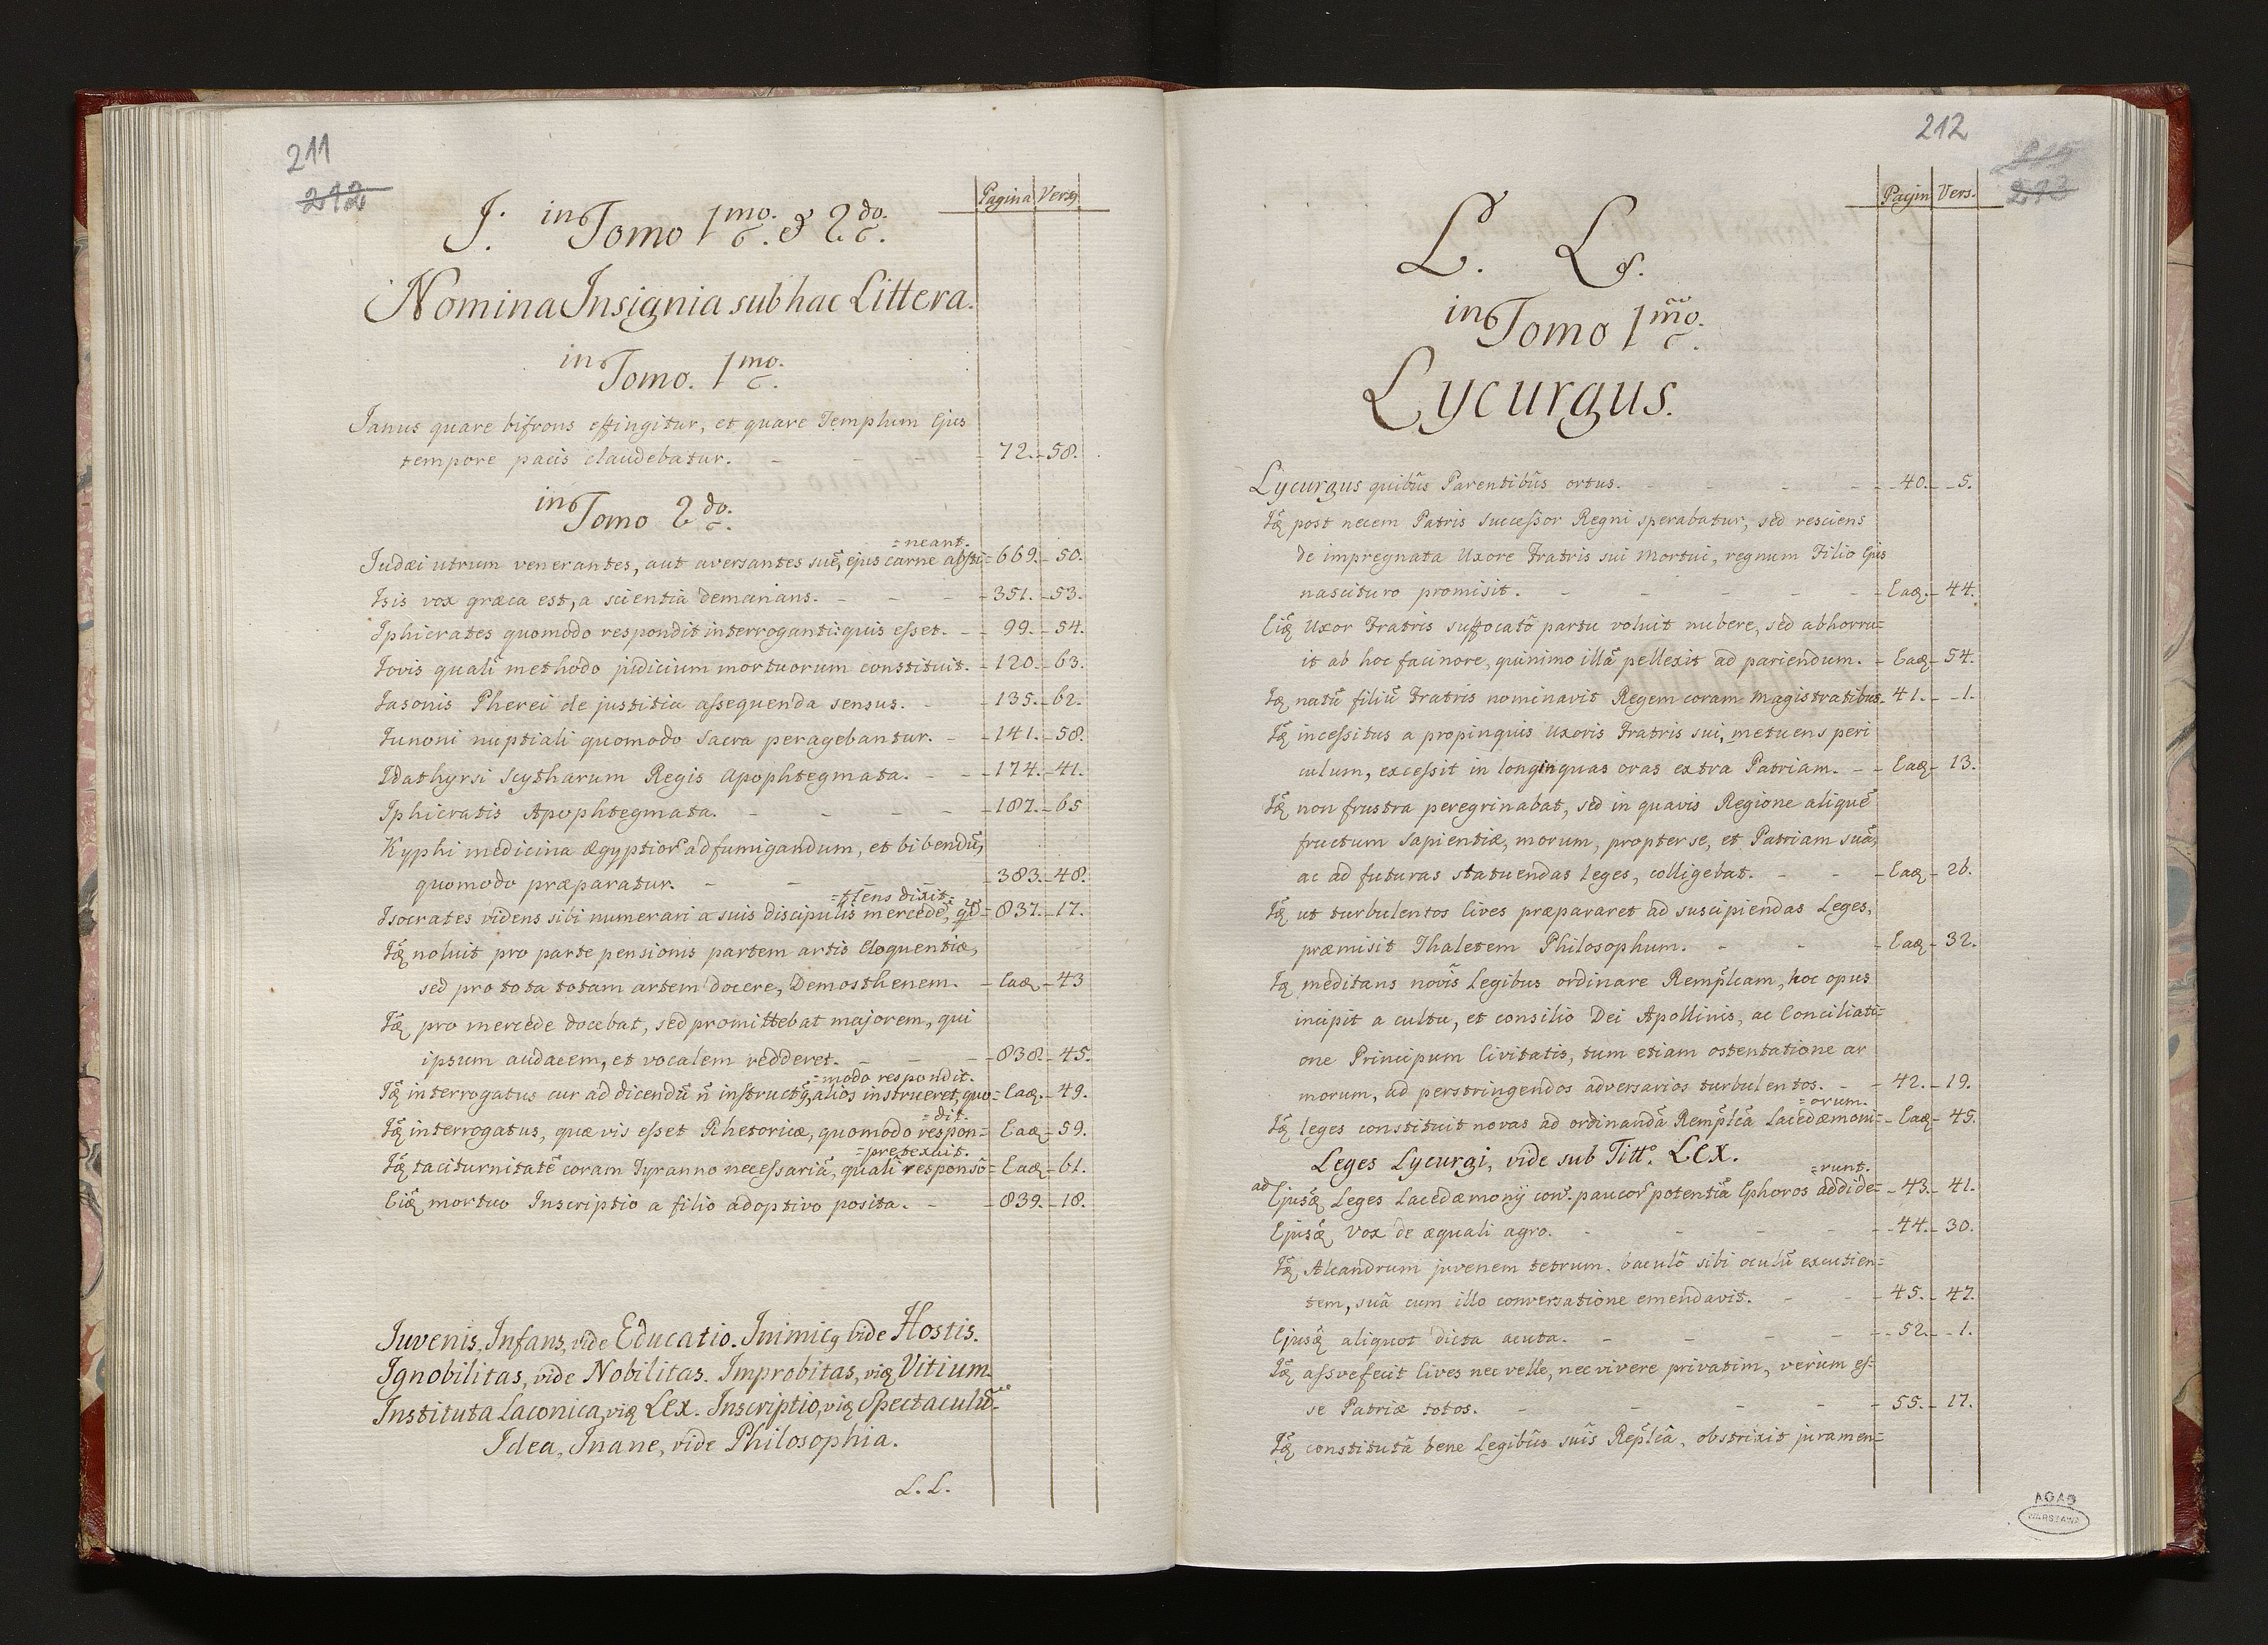 211
212
Pagina Versq
J. in Tomo 1mo. & 2do.
Nomina Insignia sub hac Littera.
in Tomo. 1mo.
Janus quare bifrons effingitur, et quare Templum Ejus
tempore pacis claudebatur. - 72. - 58.
in Tomo 2do.
=neant.
Judæi utrum venerantes, aut aversantes suē, ejus carne absti= 669. - 50.
Isis vox græca est, a scientia - 351. - 53.
Iphicrates quomodo respondit interroganti: quis esset. - 99. - 54.
Jovis quali methodo judicium mortuorum constituit. - 120. - 63.
Jasonis Pherei de justitia assequenda sensus. - 135. - 62.
Junoni nuptiali quomodo sacra peragebantur. - 141. - 58.
Idathyrsi Scytharum Regis Apophtegmata. - 174. - 41.
Iphicratis Apophtegmata. - 187. - 65
Kyphi medicina ægyptior ad fumigandum, et bibendū,
quomodo præparatur. - 383. - 48.
=flens dixit.=
Isocrates videns sibi numerari a suis discipulis mercedē, qd= 837. - 17.
Iq̃ noluit pro parte pensionis partem artis Eloquentiæ,
sed pro tota totam artem docere, Demosthenem. - Eaq - 43
Iq̃ pro mercede docebat, sed promittebat majorem, qui
ipsum audacem, et vocalem redderet. - 838. - 45.
=modo respondit.
Iq̃ interrogatus cur ad dicendū n̄ instructq, alios instrueret, quo= Eaq. - 49.
=dit.
Iq̃ interrogatus, quæ vis esset Rhetoricæ, quomodo respon= Eaq - 59.
=pretexuit.
Iq̃ taciturnitatē coram Tyranno necessariā, quali responsō= Eaq - 61.
Eiq̃ mortuo Inscriptio a filio adoptivo posita. - 839. - 18.
Juvenis, Infans, vide Educatio. Inimicq vide Hostis.
Ignobilitas, vide Nobilitas. Improbitas, viq Vitium.
Instituta Laconica, viq Lex. Inscriptio, viq Spectaculū.
Idea, Inane, vide Philosophia.
L. L.
212
213
Pagin Vers.
L. L.
in Tomo 1mo.
Lycurgus.
Lycurgus quibūs Parentibūs ortus. - 40. - 5.
Iq̃ post necem Patris successor Regni sperabatur, sed resciens
de impregnata Uxore Fratris sui mortui, regnum Filio Ejus
nascituro promisit. - Eaq. - 44.
Eiq̃ Uxor Fratris suffocatō partu voluit nubere, sed abhorru=
it ab hoc facinore, quinimo illā pellexit ad pariendum. - Eaq - 54.
Iq natū filiū Fratris nominavit Regem coram Magistratibus. 41. - 1.
Iq̃ incessitus a propinquis Uxoris Fratris sui, metuens peri
culum, excessit in longinquas oras extra Patriam. - Eaq - 13.
Iq̃ non frustra peregrinabat, sed in quavis Regione aliquē
fructum Sapientiæ, morum, propter se, et Patriam suā,
ac ad futuras statuendas Leges, colligebat. - Eaq - 26.
Iq̃ ut turbulentos Cives præpararet ad suscipiendas Leges,
præmisit Thaletem Philosophum. - Eaq - 32.
Iq meditans novis Legibus ordinare Remplcam, hoc opus
incipit a cultu, et consilio Dei Apollinis, ac Conciliati=
one Principum Civitatis, tum etiam ostentatione ar
morum, ad perstringendos adversarios turbulentos. - 42. - 19.
=orum.
Iq̃ leges constituit novas ad ordinandā Remplcā Lacedæmoni= - Eaq - 45.
Leges Lycurgi, vide sub Titto. Lex.
=runt.
ad Ejusq̃ Leges Lacedæmonij con. paucor potentiā Ephoros addide= - 43. - 41.
Ejusq̃ vox de æquali agro. - 44. - 30.
Iq̃ Alcandrum juvenem tetrum. baculō sibi oculū excutien=
tem, suā cum illo conversatione emendavit. - 45. - 47.
Ejusq̃ aliquot dicta acuta. - 52. - 1.
Iq̃ assvefecit Cives nec velle, nec vivere privatim, verùm es=
se Patriæ totos. - 55. - 17.
Iq̃ constitutā bene Legibūs suis Replcā, obstrixit juramen=
AGAD
WARSZAWA